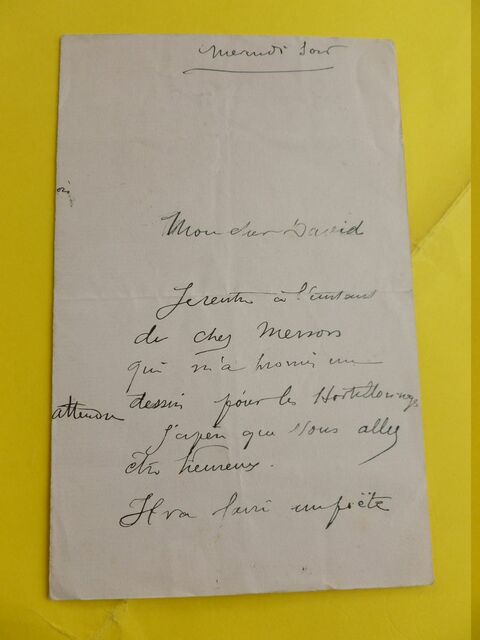 Mercredi Soir
Mon cher David
Je rentre à l'instant
de chez Merson
qui m'a promis un
dessin pour les
attendre
J'espère que vous allez
être heureux.
Il va